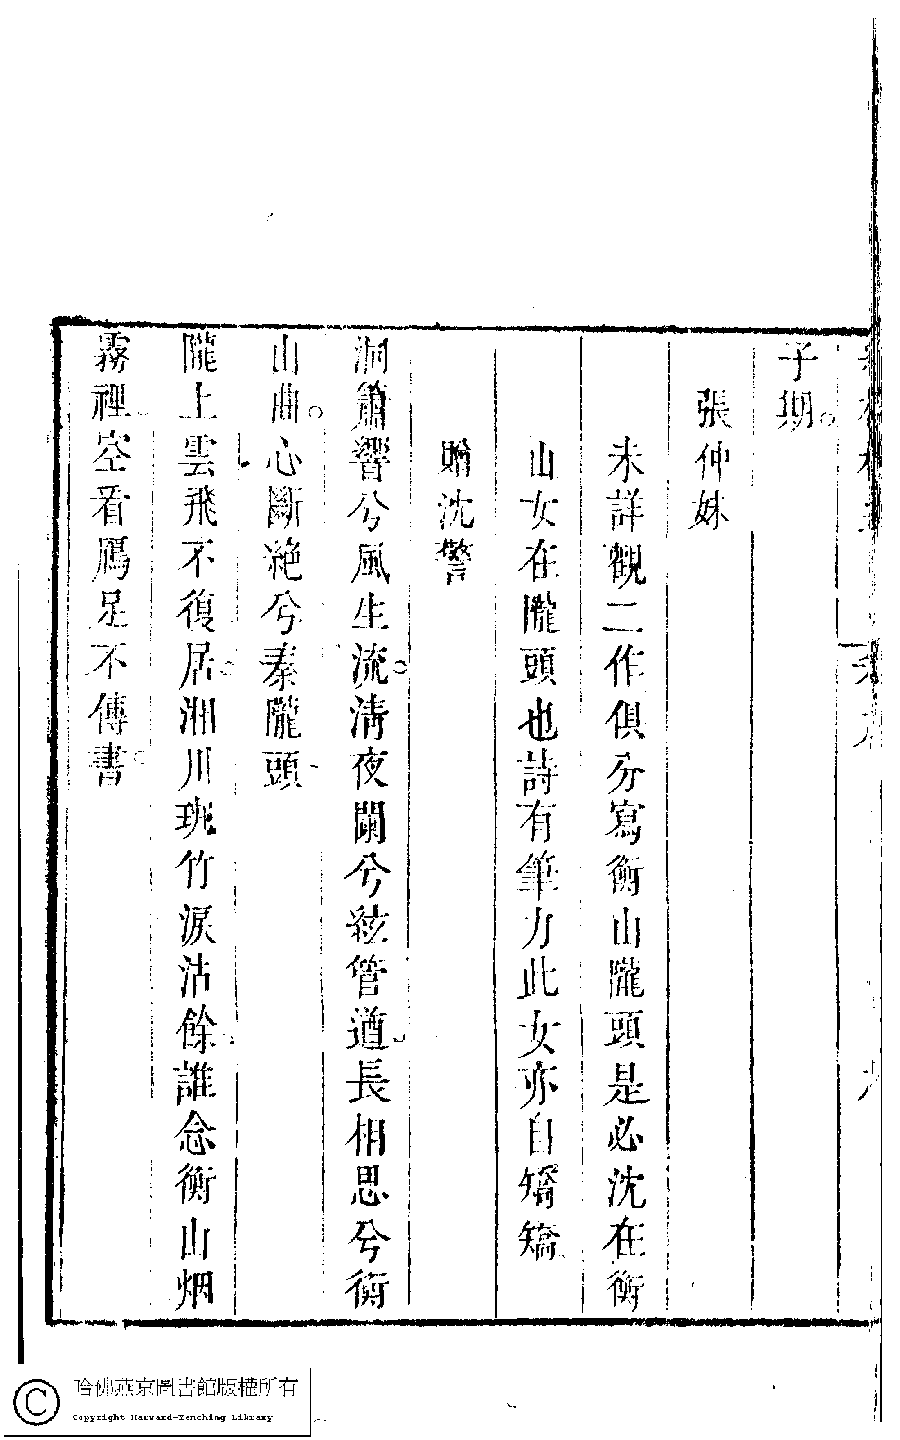 子期
張仲妹
未詳觀二作俱分寫衡山隴頭是必沈在衡
山女在隴頭也詩有筆力此女亦自矯矯
贈沈警
洞簫響兮風生流清夜闌兮絃管遒長相思兮衡
山曲心斷絶兮秦隴頭
隴上雲飛不復居湘川班竹淚沾餘誰念衡山烟
霧裡空看鴈足不傳書
哈佛燕京圖書館版權所有
Copyright Harvard-Yenching Library